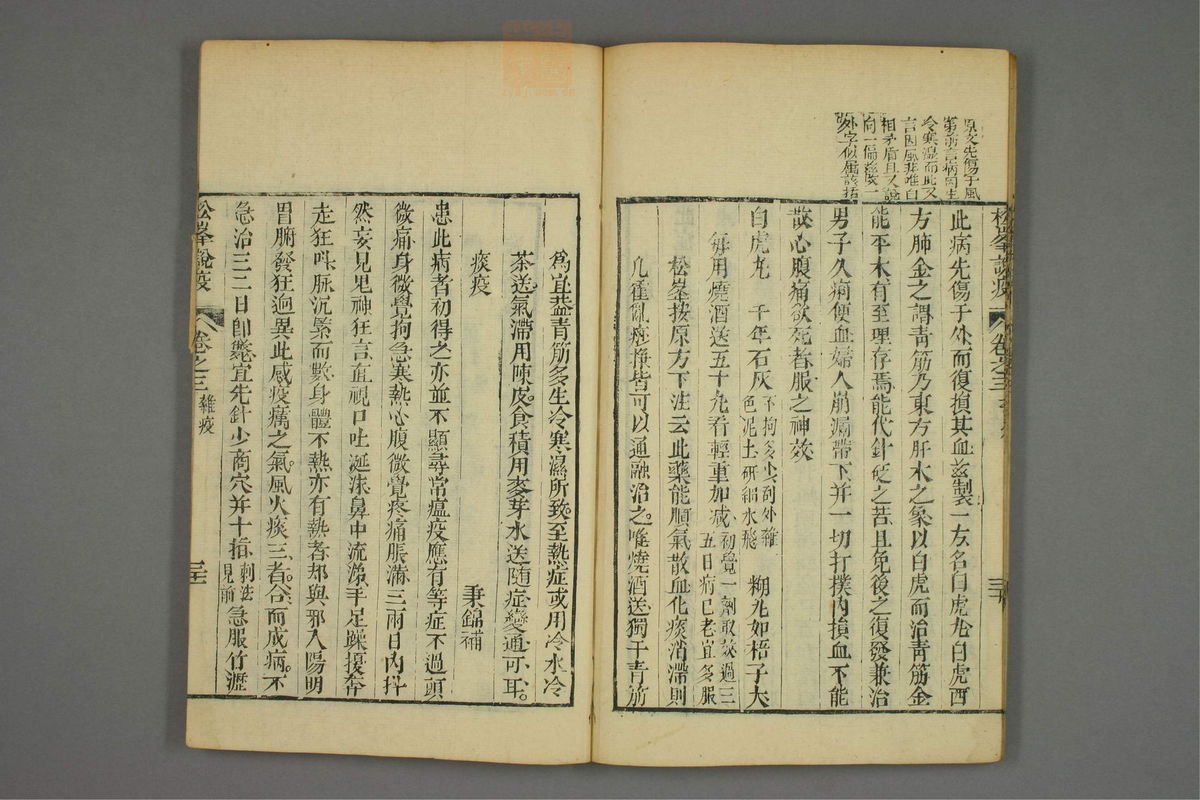 原文先傷于風
第前言病有生
冷寒濕而此又
言因風非唯自
相矛盾且又說
向一偏
外字似屬該括
松峯說疫
卷之三
此病先傷于外而復損其血茲製一方名白虎丸白虎西
方肺金之謂青筋乃東方肝木之象以白虎而治青筋金
能平木有至理存焉能代針砭之苦且免後之復發兼治
男子久痢便血婦人崩漏帶下并一切打撲內損血不能
散心腹痛欲死者服之神效
白虎丸　千年石灰不拘多少刮外雜色泥土研細水飛　糊丸如梧子大
每用燒酒送五十丸看輕重加減初覺一劑取效過三五日病已老宜多服
松峯按原方下注云此藥能順氣散血化痰消滯則
凡霍亂痧脹皆可以通融治之唯燒酒送獨于青筋
為宜蓋青筋多生冷寒濕所致至熱症或用冷水冷
茶送氣滯用陳皮食積用麥芽水送隨症變通可耳
痰疫　秉錦補
患此病者初得之亦並不顯尋常瘟疫應有等症不過頭
微痛身微覺拘急寒熱心腹微覺疼痛脹滿三兩日內抖
然妄見鬼神狂言直視口吐涎沫鼻中流涕手足躁擾奔
走狂叫脉沉緊而數身體不熱亦有熱者却與邪入陽明
胃腑發狂迥異此感疫癘之氣風火痰三者合而成病不
急治三二日卽斃宜先針少商穴并十指刺法見前急服竹瀝
松峯說疫
卷之三
雜疫